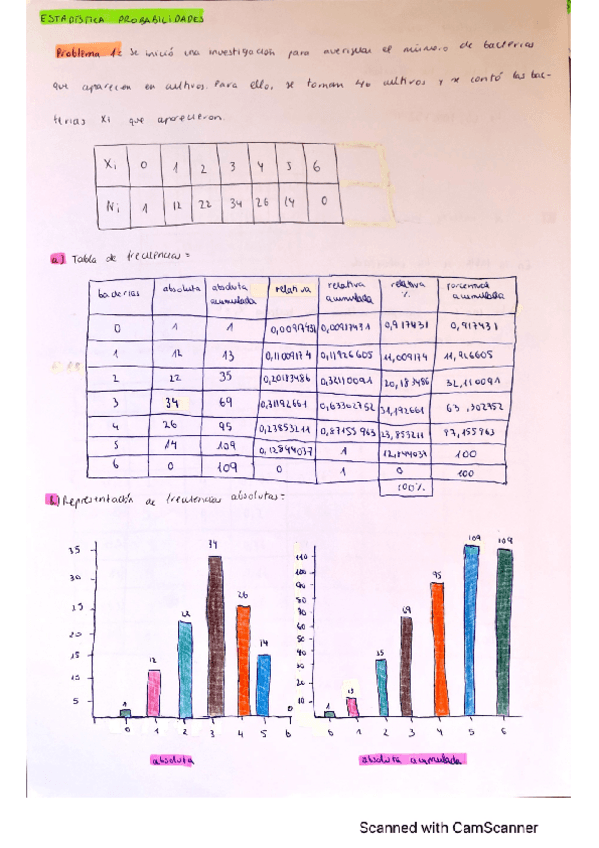 ESTADÍSTICA PROBABILIDADES
Problema 1: Se inició una investigación para averiguar el número de bacterias
que aparecen en cultivos. Para ello, se toman 40 cultivos y se contó las bac-
terias xi que aparecieron.
Xi 0 1 2 3 4 5 6
Ni 1 12 22 34 26 14 0
a) Tabla de frecuencias:
bacterias absoluta absoluta acumulada relativa relativa acumulada relativa % porcentual acumulada
0 1 1 0,00917431 0,00917431 0,917431 0,917431
1 12 13 0,11009174 0,11926605 11,009174 11,926605
2 22 35 0,20183486 0,32110091 20,183486 32,110091
3 34 69 0,31192661 0,63302752 31,192661 63,302752
4 26 95 0,23853211 0,87155963 23,853211 87,155963
5 14 109 0,12844037 1 12,844037 100
6 0 109 0 1 0 100
100%
b) Representación de frecuencias absolutas:
35 30 25 20 15 10 5
1 12 22 34 26 14 0
0 1 2 3 4 5 6
absoluta
110 100 90 80 70 60 50 40 30 20 10
1 13 35 69 95 109 109
0 1 2 3 4 5 6
absoluta acumulada
Scanned with CamScanner